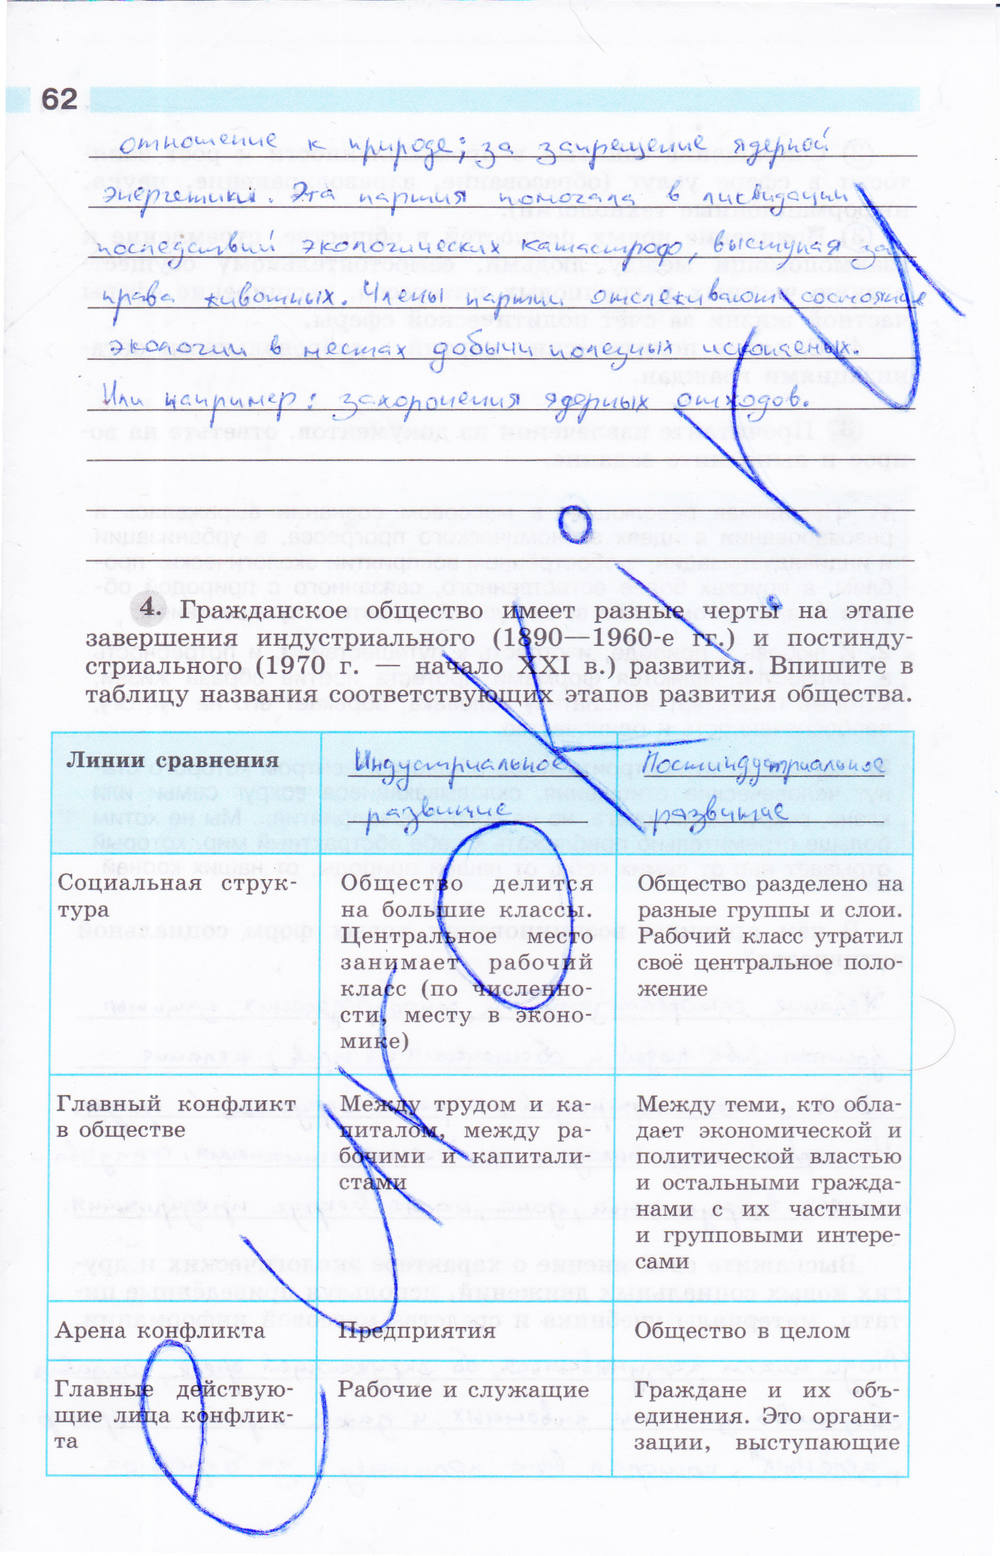 62
отношение к природе; за запрещение ядерной
энергетики. Эта партия помогала в ликвидации
последствий экологических катастроф, выступая за
права животных. Члены партии отслеживают состояние
экологии в местах добычи полезных ископаемых.
Или например: захоронения ядерных отходов.
4. Гражданское общество имеет разные черты на этапе
завершения индустриального (1890—1960-е гг.) и постинду-
стриального (1970 г. — начало XXI в.) развития. Впишите в
таблицу названия соответствующих этапов развития общества.
Линии сравнения
Индустриальное
развитие
Постиндустриальное
развитие
Социальная струк-
тура
Общество делится
на большие классы.
Центральное место
занимает рабочий
класс (по численно-
сти, месту в эконо-
мике)
Общество разделено на
разные группы и слои.
Рабочий класс утратил
своё центральное поло-
жение
Главный конфликт
в обществе
Между трудом и ка-
питалом, между ра-
бочими и капитали-
стами
Между теми, кто обла-
дает экономической и
политической властью
и остальными гражда-
нами с их частными
и групповыми интере-
сами
Арена конфликта
Предприятия
Общество в целом
Главные действую-
щие лица конфлик-
та
Рабочие и служащие
Граждане и их объ-
единения. Это органи-
зации, выступающие